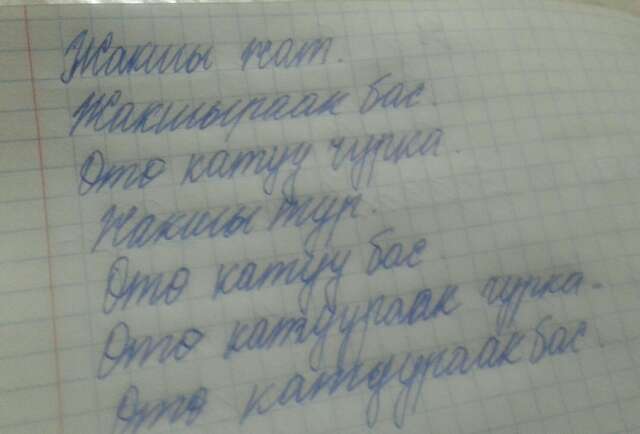 Жакшы жат.
Жакшыраак бас.
Ото катуу чурка.
Жакшы тур.
Ото катуу бас.
Ото катуураак чурка.
Ото катуураак бас.